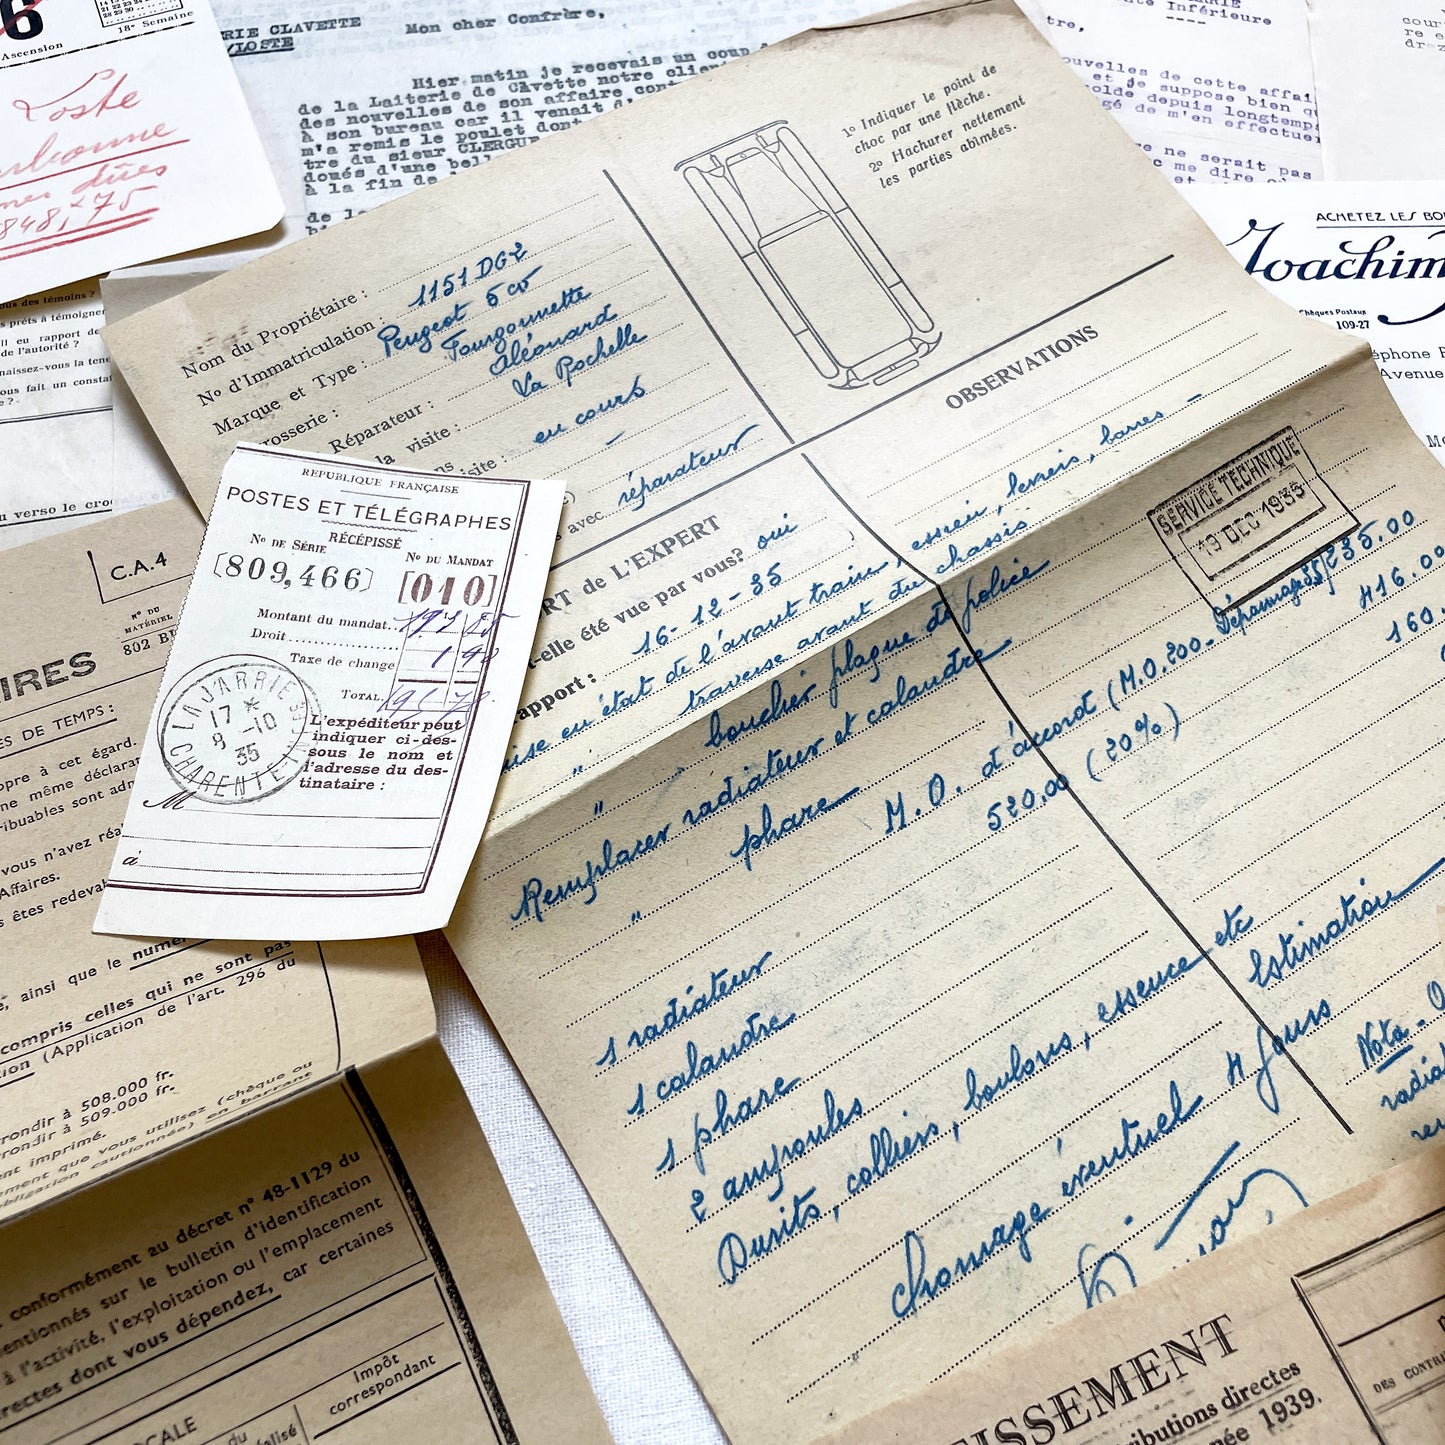 6
Ascension
18e Semaine
Loste
848,75
RIE CLAVETTE
/LOSTE
Mon cher Confrère,
Hier matin je recevais un coup
de la Laiterie de Clavette notre clien
des nouvelles de son affaire cont
à son bureau car il venait d'
m'a remis le poulet dont
tre du sieur CLERGU
doués d'une bell
à la fin de
de la
nte Inférieure
ouvelles de cette affai
et je suppose bien qu
olde depuis longtemp
gé de m'en effectuer
re ne serait pas
me dire
ACHETEZ LES BO
Joachim
Chèques Postaux
109-27
éphone
Avenue
1o Indiquer le point de
choc par une flèche.
2o Hachurer nettement
les parties abîmées.
Nom du Propriétaire :
No d'Immatriculation : 1151 DG2
Marque et Type : Peugeot 5 cv
rosserie : Fourgonnette
Réparateur : Aléonard
la visite : La Rochelle
isite : en cours
avec réparateur
OBSERVATIONS
RT de L'EXPERT
t-elle été vue par vous? oui
apport : 16-12-35
ise en état de l'avant train, essieu, leviers, barres -
" traverse avant du chassis
" bouclier plaque de police
Remplacer radiateur et calandre
" phare M.O. d'accord (M.O. 200 - Dépannage 35) 235.00
520,00 (20%) 416.00
160.
1 radiateur
1 calandre
1 phare
2 ampoules
Durits, colliers, boulons, essence etc
Estimation
chomage éventuel 4 jours
Nota - O
radia
SERVICE TECHNIQUE
19 DEC 1935
REPUBLIQUE FRANÇAISE
POSTES ET TÉLÉGRAPHES
RÉCÉPISSÉ
No DE SÉRIE
No DU MANDAT
[809,466]
[010]
Montant du mandat.
Droit
Taxe de change
TOTAL
L'expéditeur peut
indiquer ci-des-
sous le nom et
l'adresse du des-
tinataire :
LAJARRIE
17 *
9 -10
35
CHARENTE
M
à
ous des témoins ?
prêts à témoigner
il eu rapport de
de l'autorité ?
naissez-vous la tene
ous fait un constat
e ? -
u verso le cro
C.A.4
No DU
MATÉRIEL
802 B
IRES
ES DE TEMPS :
opre à cet égard.
ne même déclarat
ibuables sont adm
vous n'avez réa
Affaires.
s êtes redevab
, ainsi que le numér
compris celles qui ne sont pas
tion (Application de l'art. 296 du
rondir à 508.000 fr.
rondir à 509.000 fr.
ent imprimé.
ement que vous utilisez (chèque ou
bligation cautionnée) en barrant
conformément au décret no 48-1129 du
entionnés sur le bulletin d'identification
à l'activité, l'exploitation ou l'emplacement
rectes dont vous dépendez, car certaines
OCALE
du
éalisé
Impôt
correspondant
ISSEMENT
ibutions directes
née 1939.
DES CONTRI